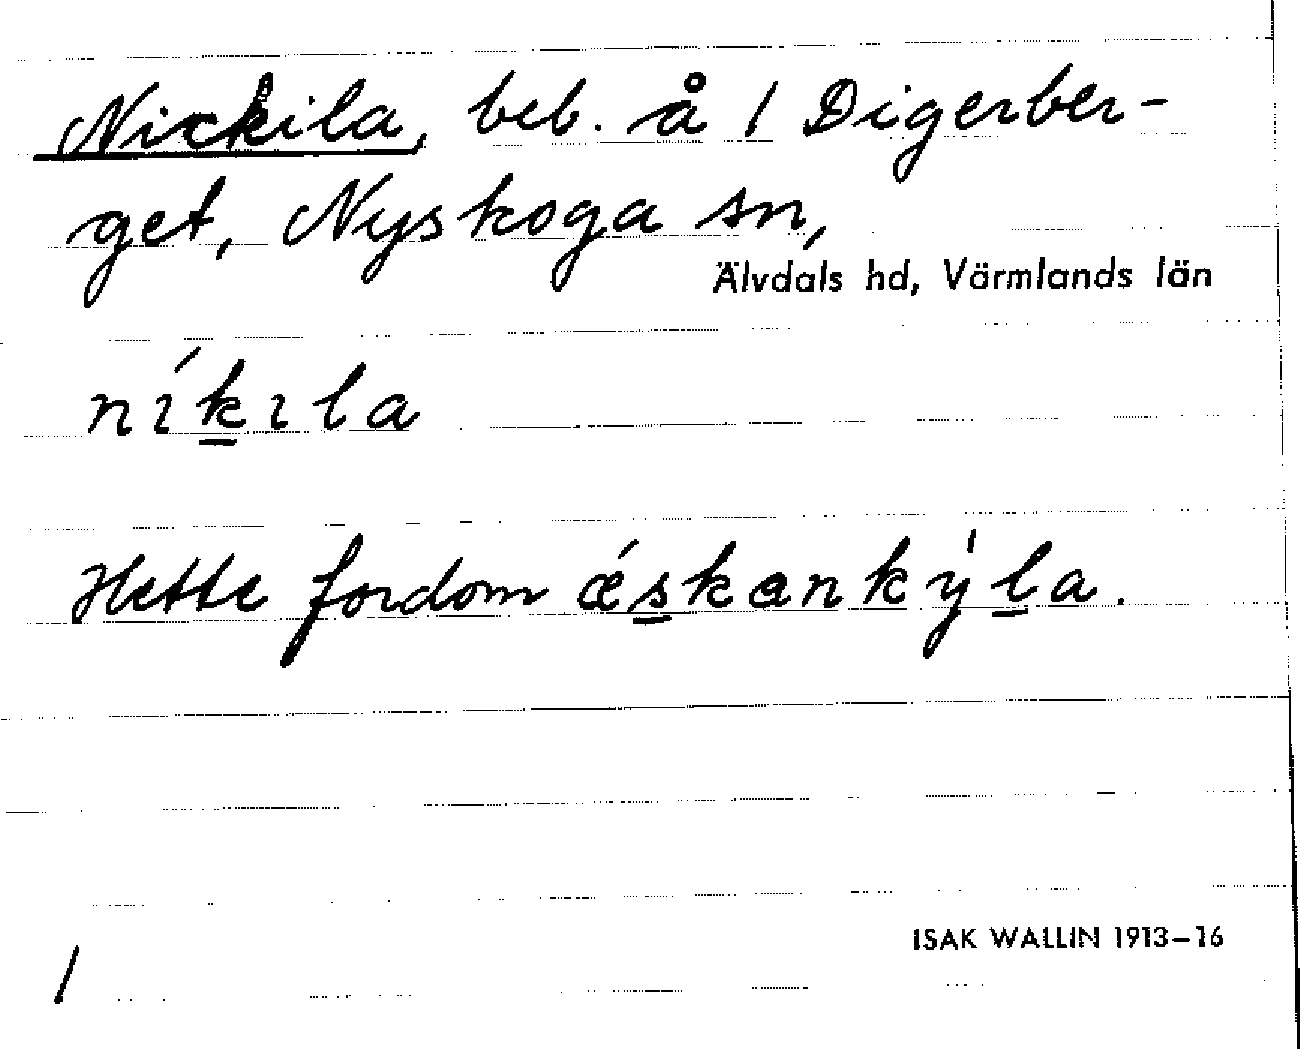 Nickila, beb. å 1 Digerber-
get, Nyskoga sn,
Älvdals hd, Värmlands län
níḵıla
Hette fordom ǽs̱kankýḻa.
ISAK WALLIN 1913–16
1